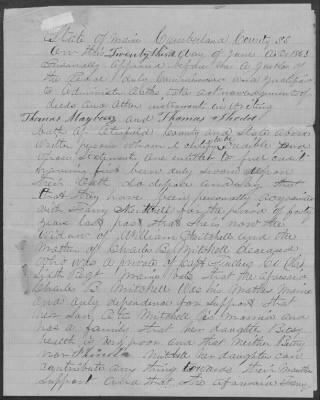 State of Main Cumberland County SS
On this Twenty third day of June AD 1863
Personally appeared before me a Justice of
the Peace duly Commissioned and qualified
to Administer Oaths take acknowledgments of
deeds and other instrument in writing
Thomas Mayberry and Thomas Rhodes
both of County and State above
written persons whom I certify to be credible and
whose Statements are entitled to full credit
having first been duly sworn upon
their Oath do depose and say that
that they have been personally acquainted
with Fany Mitchell for the period of forty
years last past that she is now the
widow of William Mitchell and the
Mother of Charles B Mitchell deceased
who was a private of Capt Co
fifth Regt Maine Vols that the aforesaid
Charles B Mitchell was his Mother Maine
and only dependence for Support that
her Son Mitchell is married and
has a family that her daughter Betsy
health is very poor and that neither Betsy
nor Mitchell her daughter can
contribute any thing towards their Mother
Support And that she aforesaid Fany